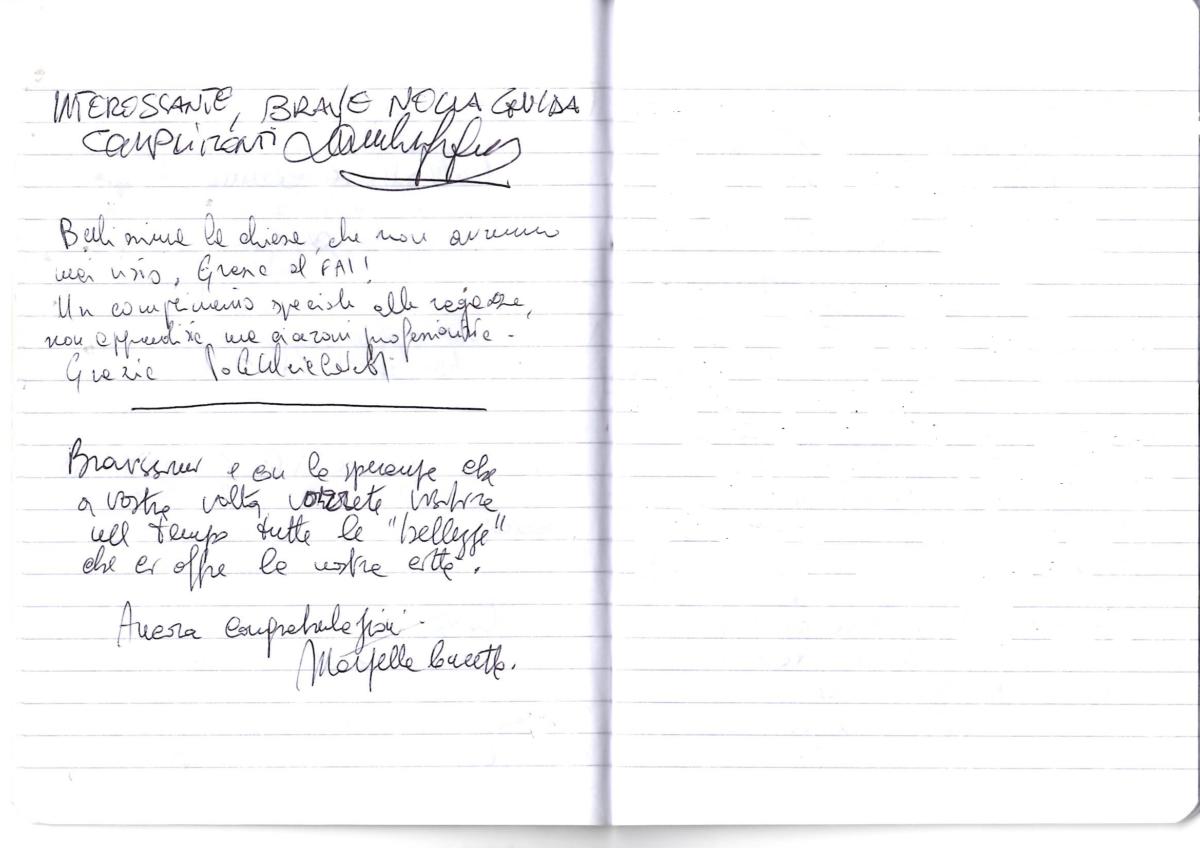 INTERESSANTE, BRAVE NELLA GUIDA
COMPLIMENTI
Bellissima la chiesa, che non avremmo
mai visto, Grazie al FAI!
Un complimento speciale alle ragazze,
non apprendiste, ma ciceroni professioniste.
Grazie
Bravissimi e con la speranza che
a vostra volta, vorrete visitare
nel tempo tutte le "bellezze"
che ci offre la nostra città.
Ancora congratulazioni.
Marisella